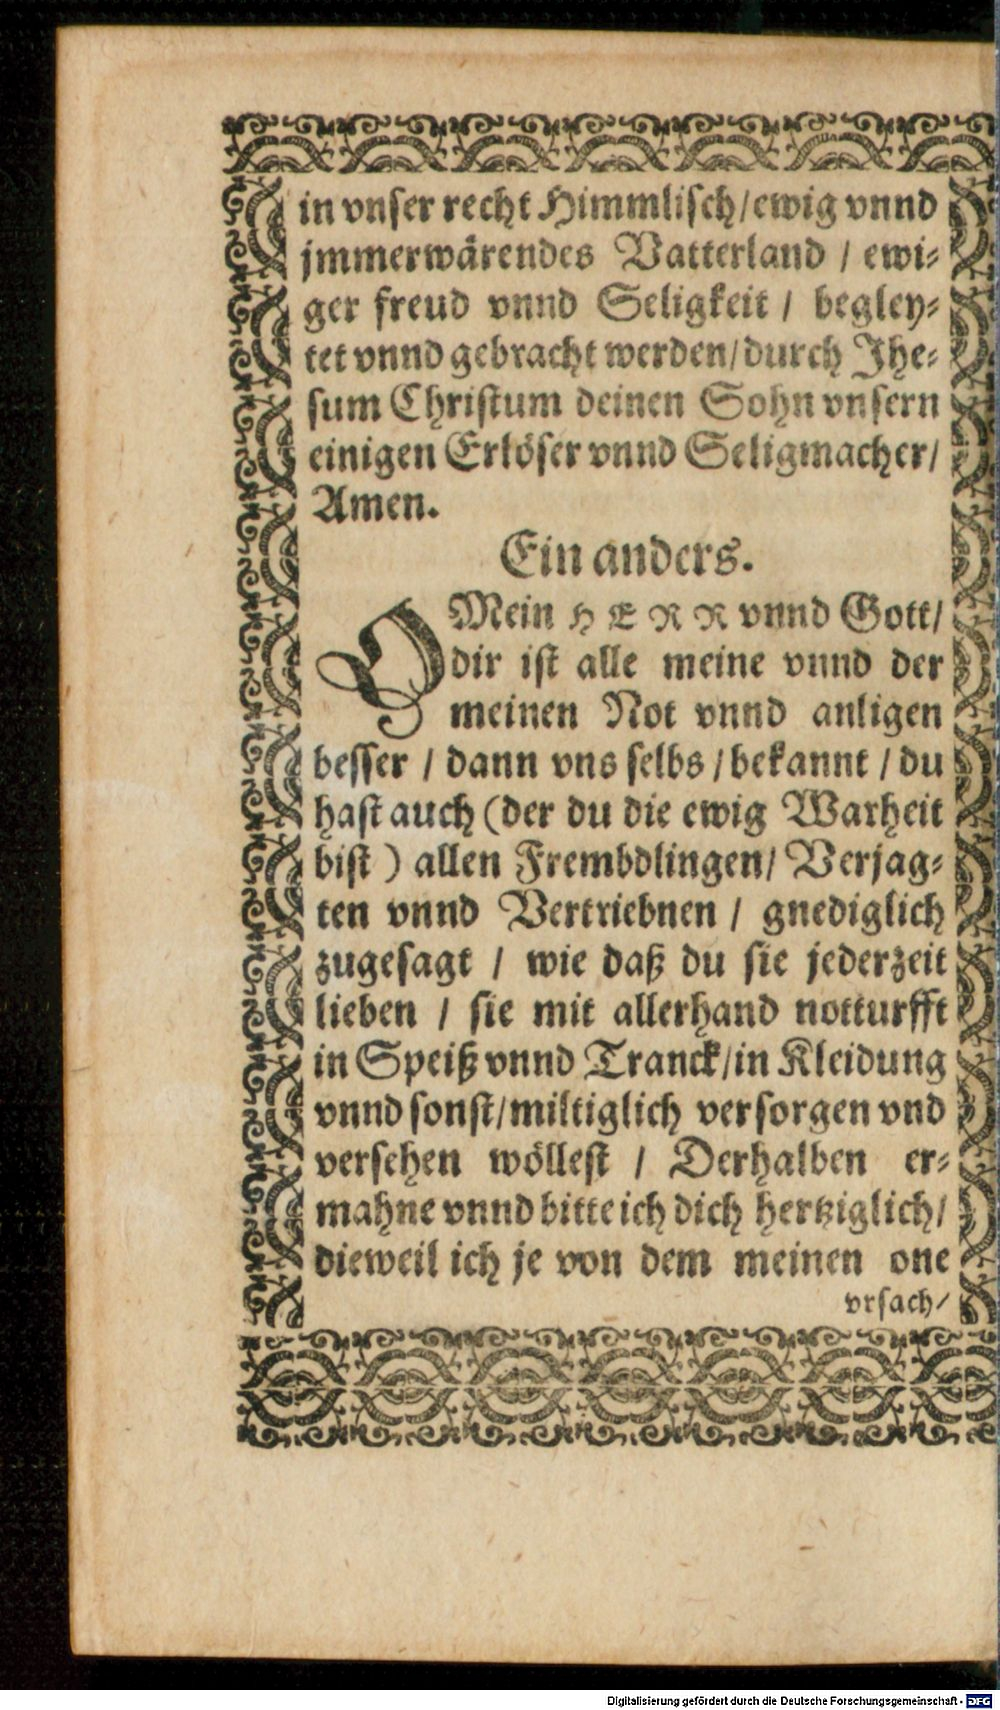 in vnser recht Himmlisch/ewig vnnd
jmmerwärendes Vatterland / ewi-
ger freud vnnd Seligkeit / begley-
tet vnnd gebracht werden/durch Jhe-
sum Christum deinen Sohn vnsern
einigen Erlöser vnnd Seligmacher/
Amen.
Ein anders.
O Mein HERR vnnd Gott/
dir ist alle meine vnnd der
meinen Not vnnd anligen
besser / dann vns selbs / bekannt / du
hast auch (der du die ewig Warheit
bist ) allen Frembdlingen/ Verjag-
ten vnnd Vertriebnen / gnediglich
zugesagt / wie daß du sie jederzeit
lieben / sie mit allerhand notturfft
in Speiß vnnd Tranck/in Kleidung
vnnd sonst/miltiglich versorgen vnd
versehen wöllest / Derhalben er-
mahne vnnd bitte ich dich hertziglich/
dieweil ich je von dem meinen one
vrsach/
Digitalisierung gefördert durch die Deutsche Forschungsgemeinschaft - DFG